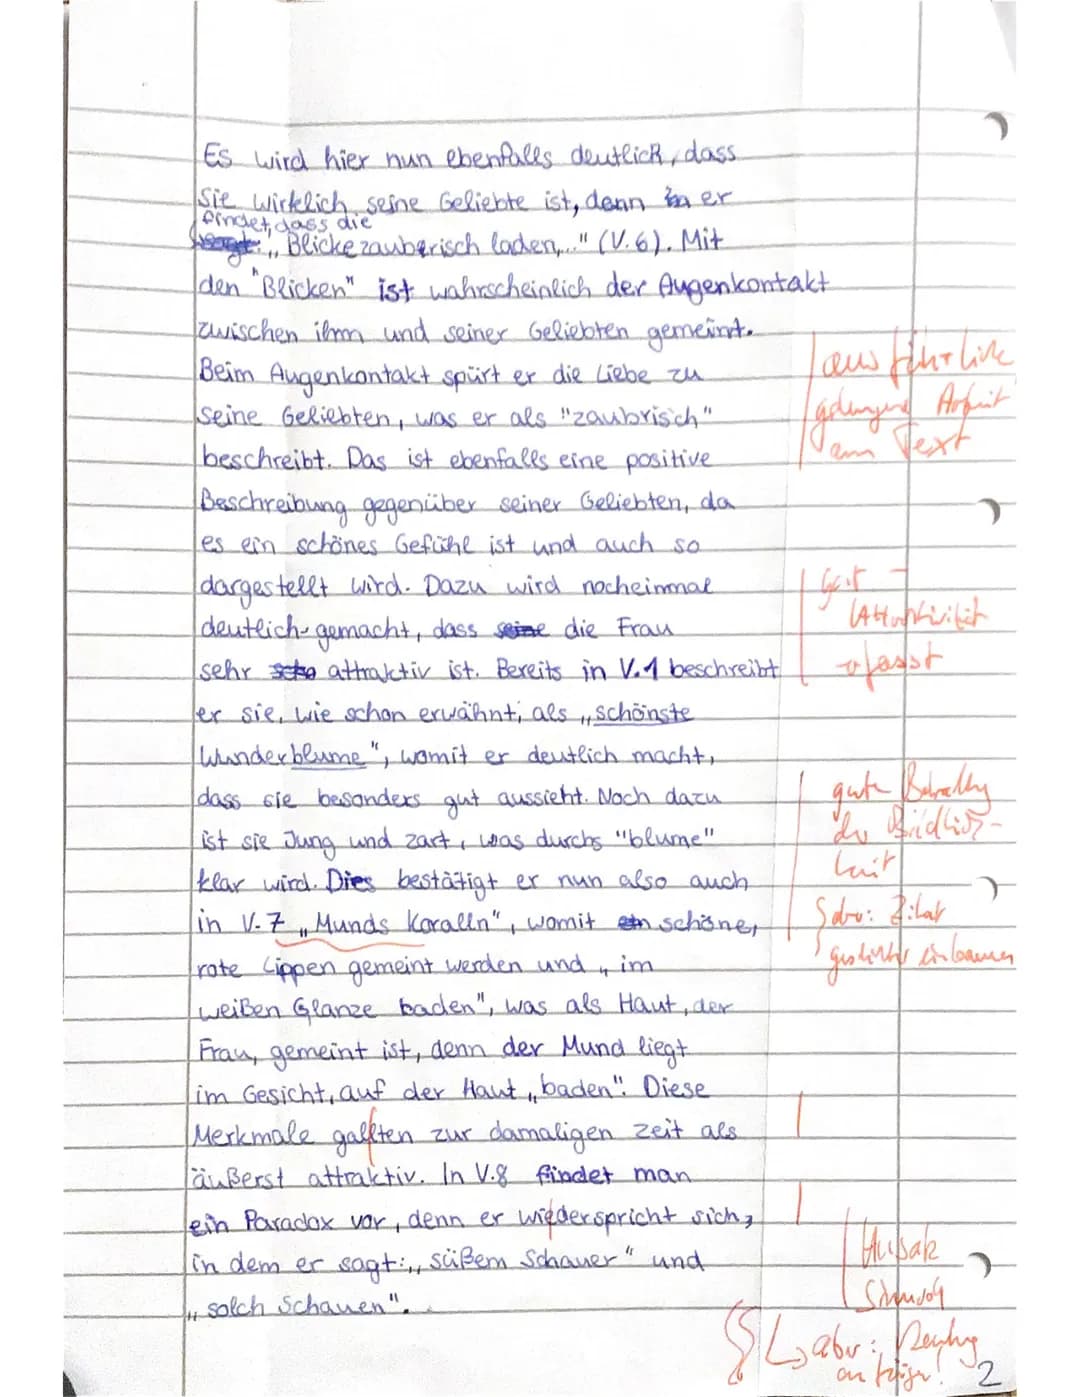 Es wird hier nun ebenfalls deutlich, dass
Sie wirklich seine Geliebte ist, denn er
findet, dass die
„Blicke zauberisch laden,..." (V.6). Mit
den "Blicken" ist wahrscheinlich der Augenkontakt
zwischen ihm und seiner Geliebten gemeint.
Beim Augenkontakt spürt er die Liebe zu
seine Geliebten, was er als "zaubrisch"
beschreibt. Das ist ebenfalls eine positive
Beschreibung gegenüber seiner Geliebten, da
es ein schönes Gefühl ist und auch so
dargestellt wird. Dazu wird nocheinmal
deutlich gemacht, dass seine die Frau
sehr attraktiv ist. Bereits in V.1 beschreibt
er sie, wie schon erwähnt, als „schönste
Wunderblume", womit er deutlich macht,
dass sie besonders gut aussieht. Noch dazu
ist sie Jung und zart, was durchs "blume"
klar wird. Dies bestätigt er nun also auch
in V.7 „Munds Koralln", womit schöne,
rote Lippen gemeint werden und „im
weißen Glanze baden", was als Haut, der
Frau, gemeint ist, denn der Mund liegt
im Gesicht, auf der Haut „baden". Diese
Merkmale gallten zur damaligen Zeit als
äußerst attraktiv. In V.8 findet man
ein Paradox vor, denn er wiederspricht sich,
in dem er sagt: „süßem Schauer" und
„solch Schauen".
ausführliche
gelungene Arbeit
am Text
gut -
Attraktivität
erfasst
gute
Zitat
aber:
2